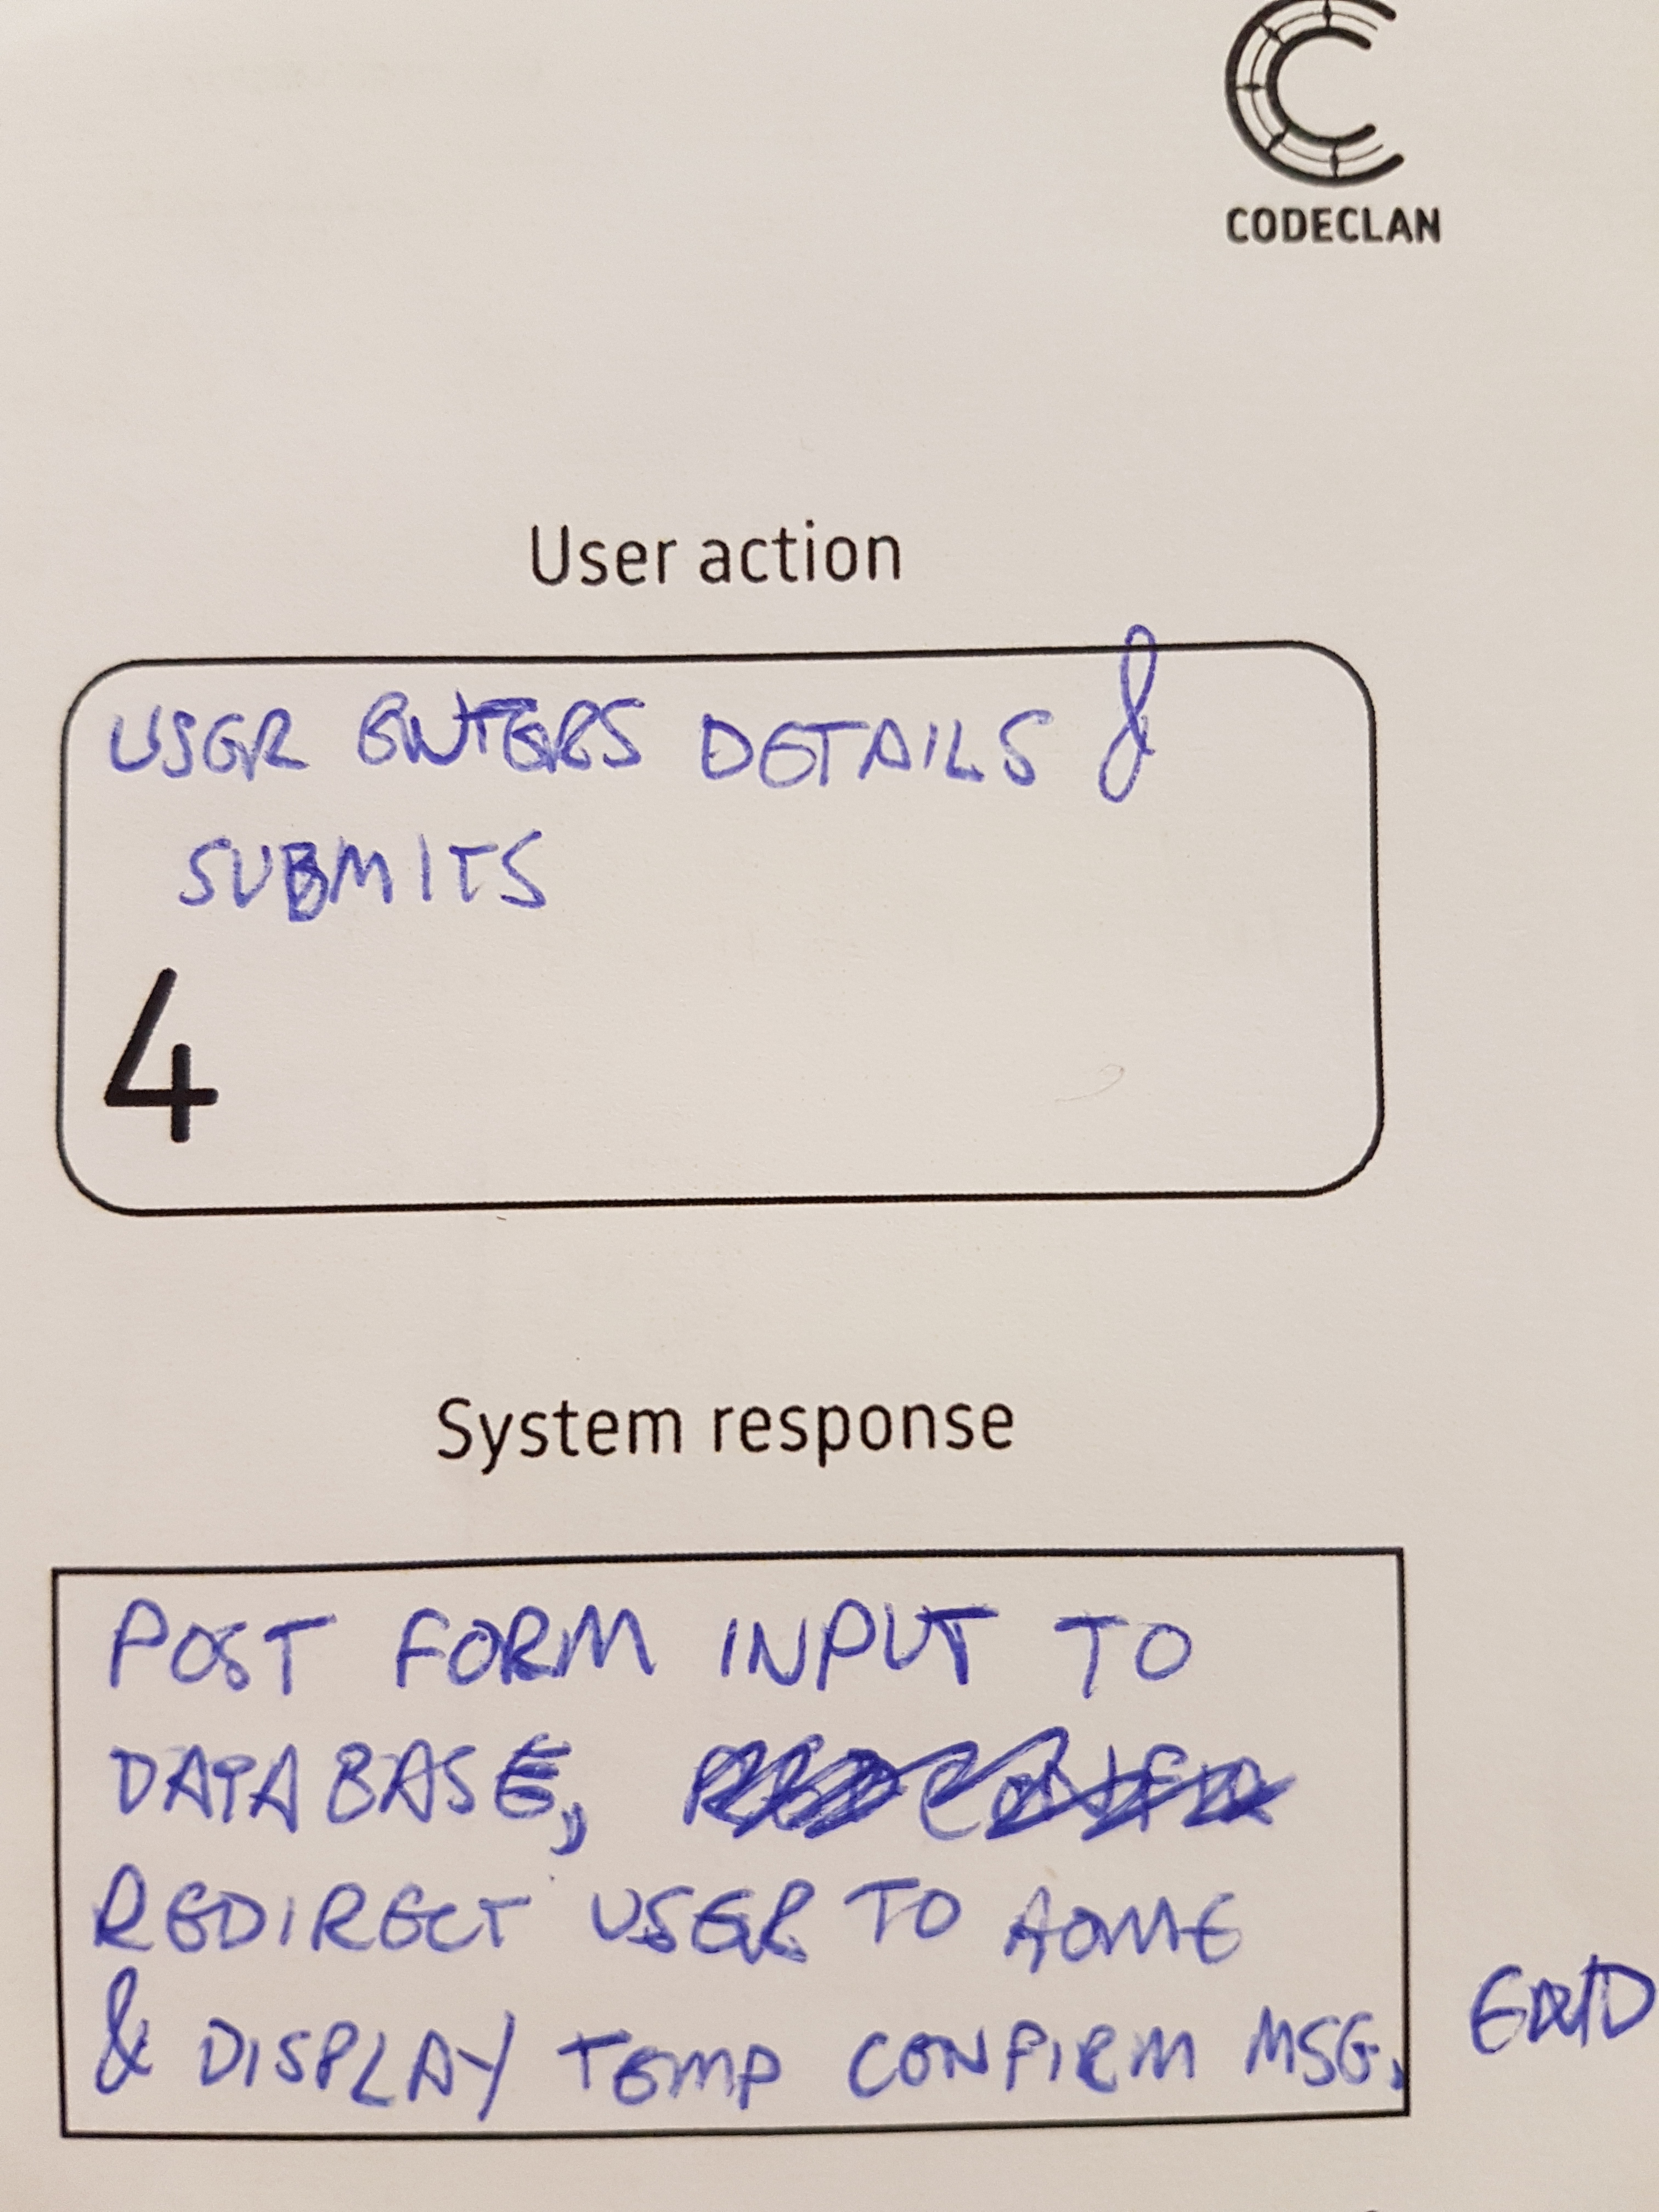 CODECLAN
User action
USER ENTERS DETAILS &
SUBMITS
4
System response
POST FORM INPUT TO
DATABASE,
REDIRECT USER TO HOME
& DISPLAY TEMP CONFIRM MSG.
END